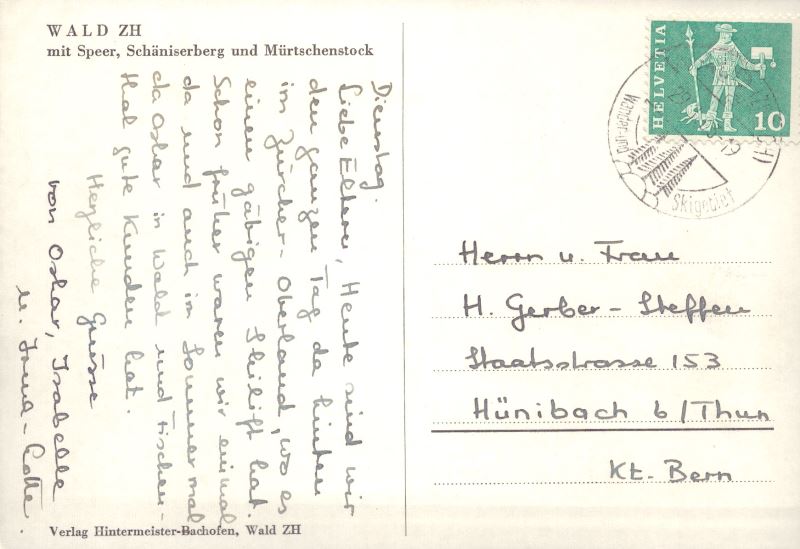 WALD ZH
mit Speer, Schäniserberg und Mürtschenstock
Dienstag.
Liebe Eltern, Heute sind wir
den ganzen Tag da hinten
im Zürcher-Oberland, wo es
einen gäbigen Skilift hat.
Schon früher waren wir einmal
da und auch im Sommer mal
da Oskar in Wald und Fischen-
thal gute Kunden hat.
Herzliche Grüsse
von Oskar, Isabelle
u.
Verlag Hintermeister-Bachofen, Wald ZH
HELVETIA
10
Wander- und
Skigebiet
Herrn u. Frau
H. Gerber-Steffen
Staatsstrasse 153
Hünibach b/Thun
Kt. Bern